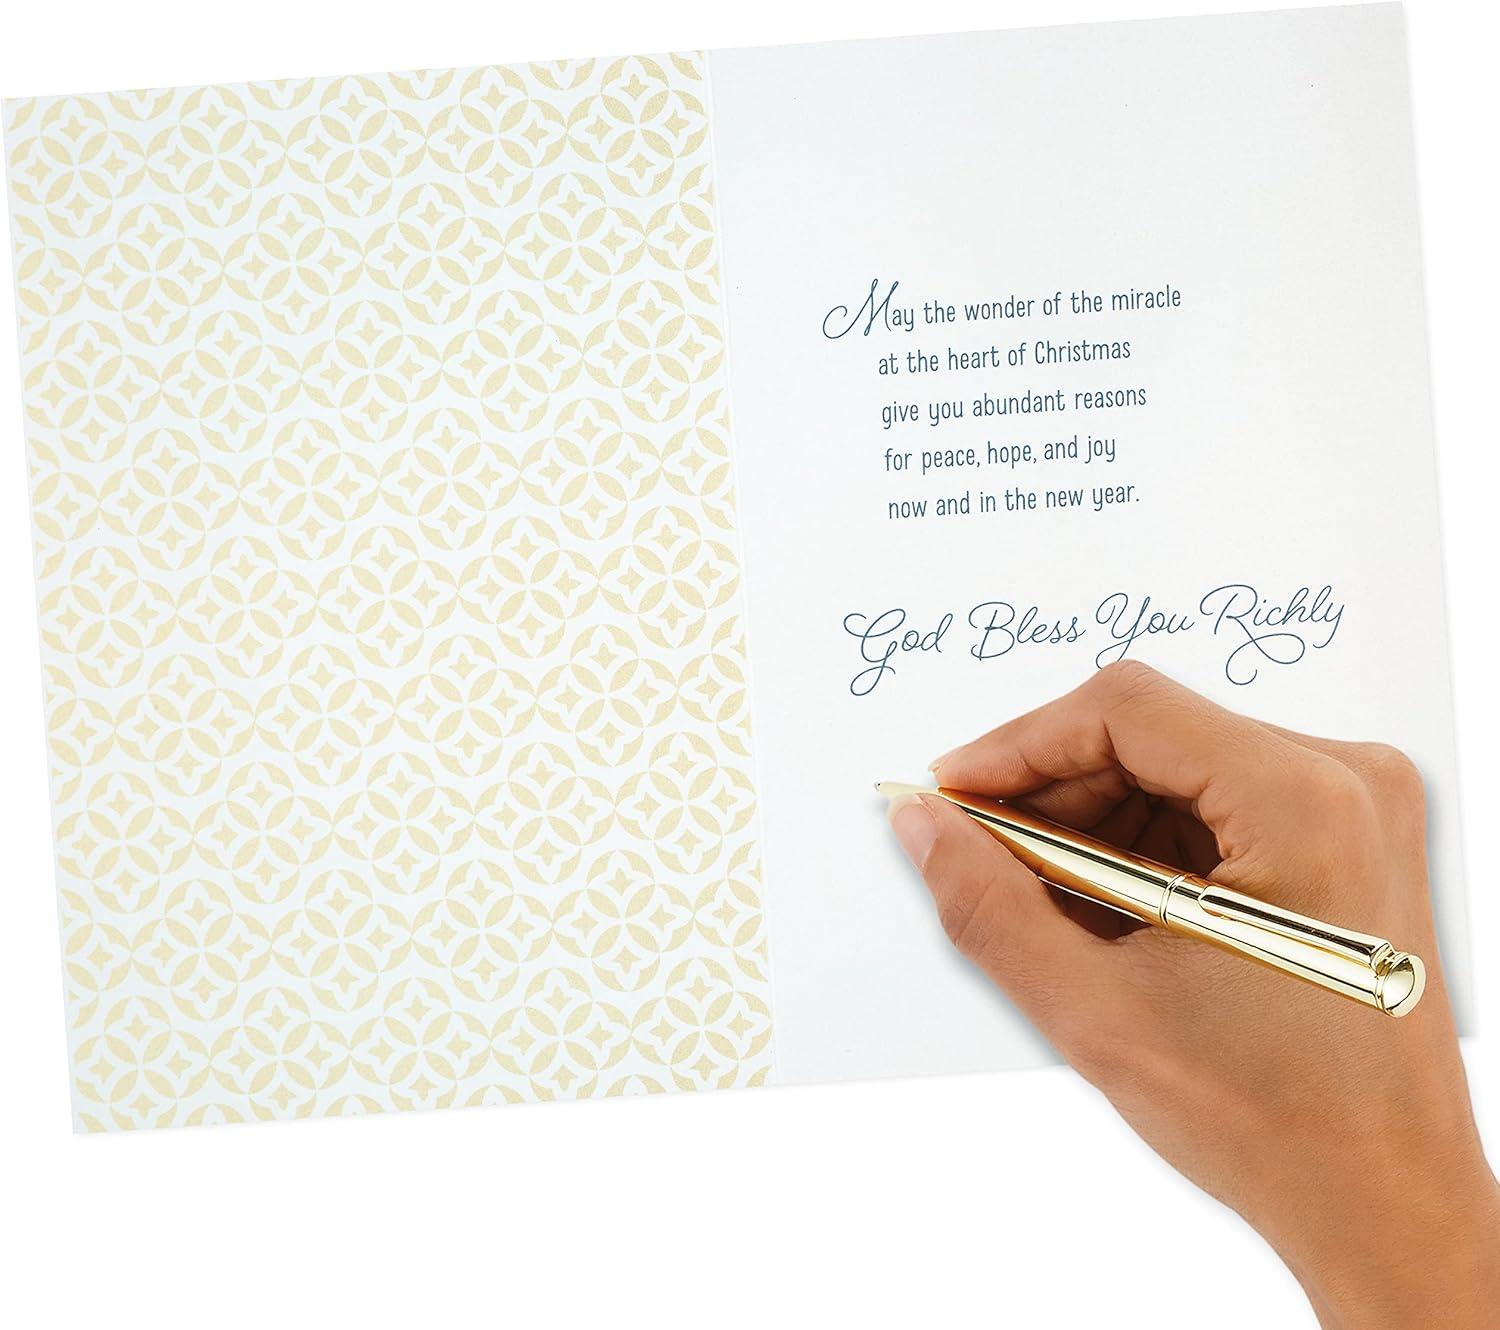 May the wonder of the miracle
at the heart of Christmas
give you abundant reasons
for peace, hope, and joy
now and in the new year.
God Bless You Richly